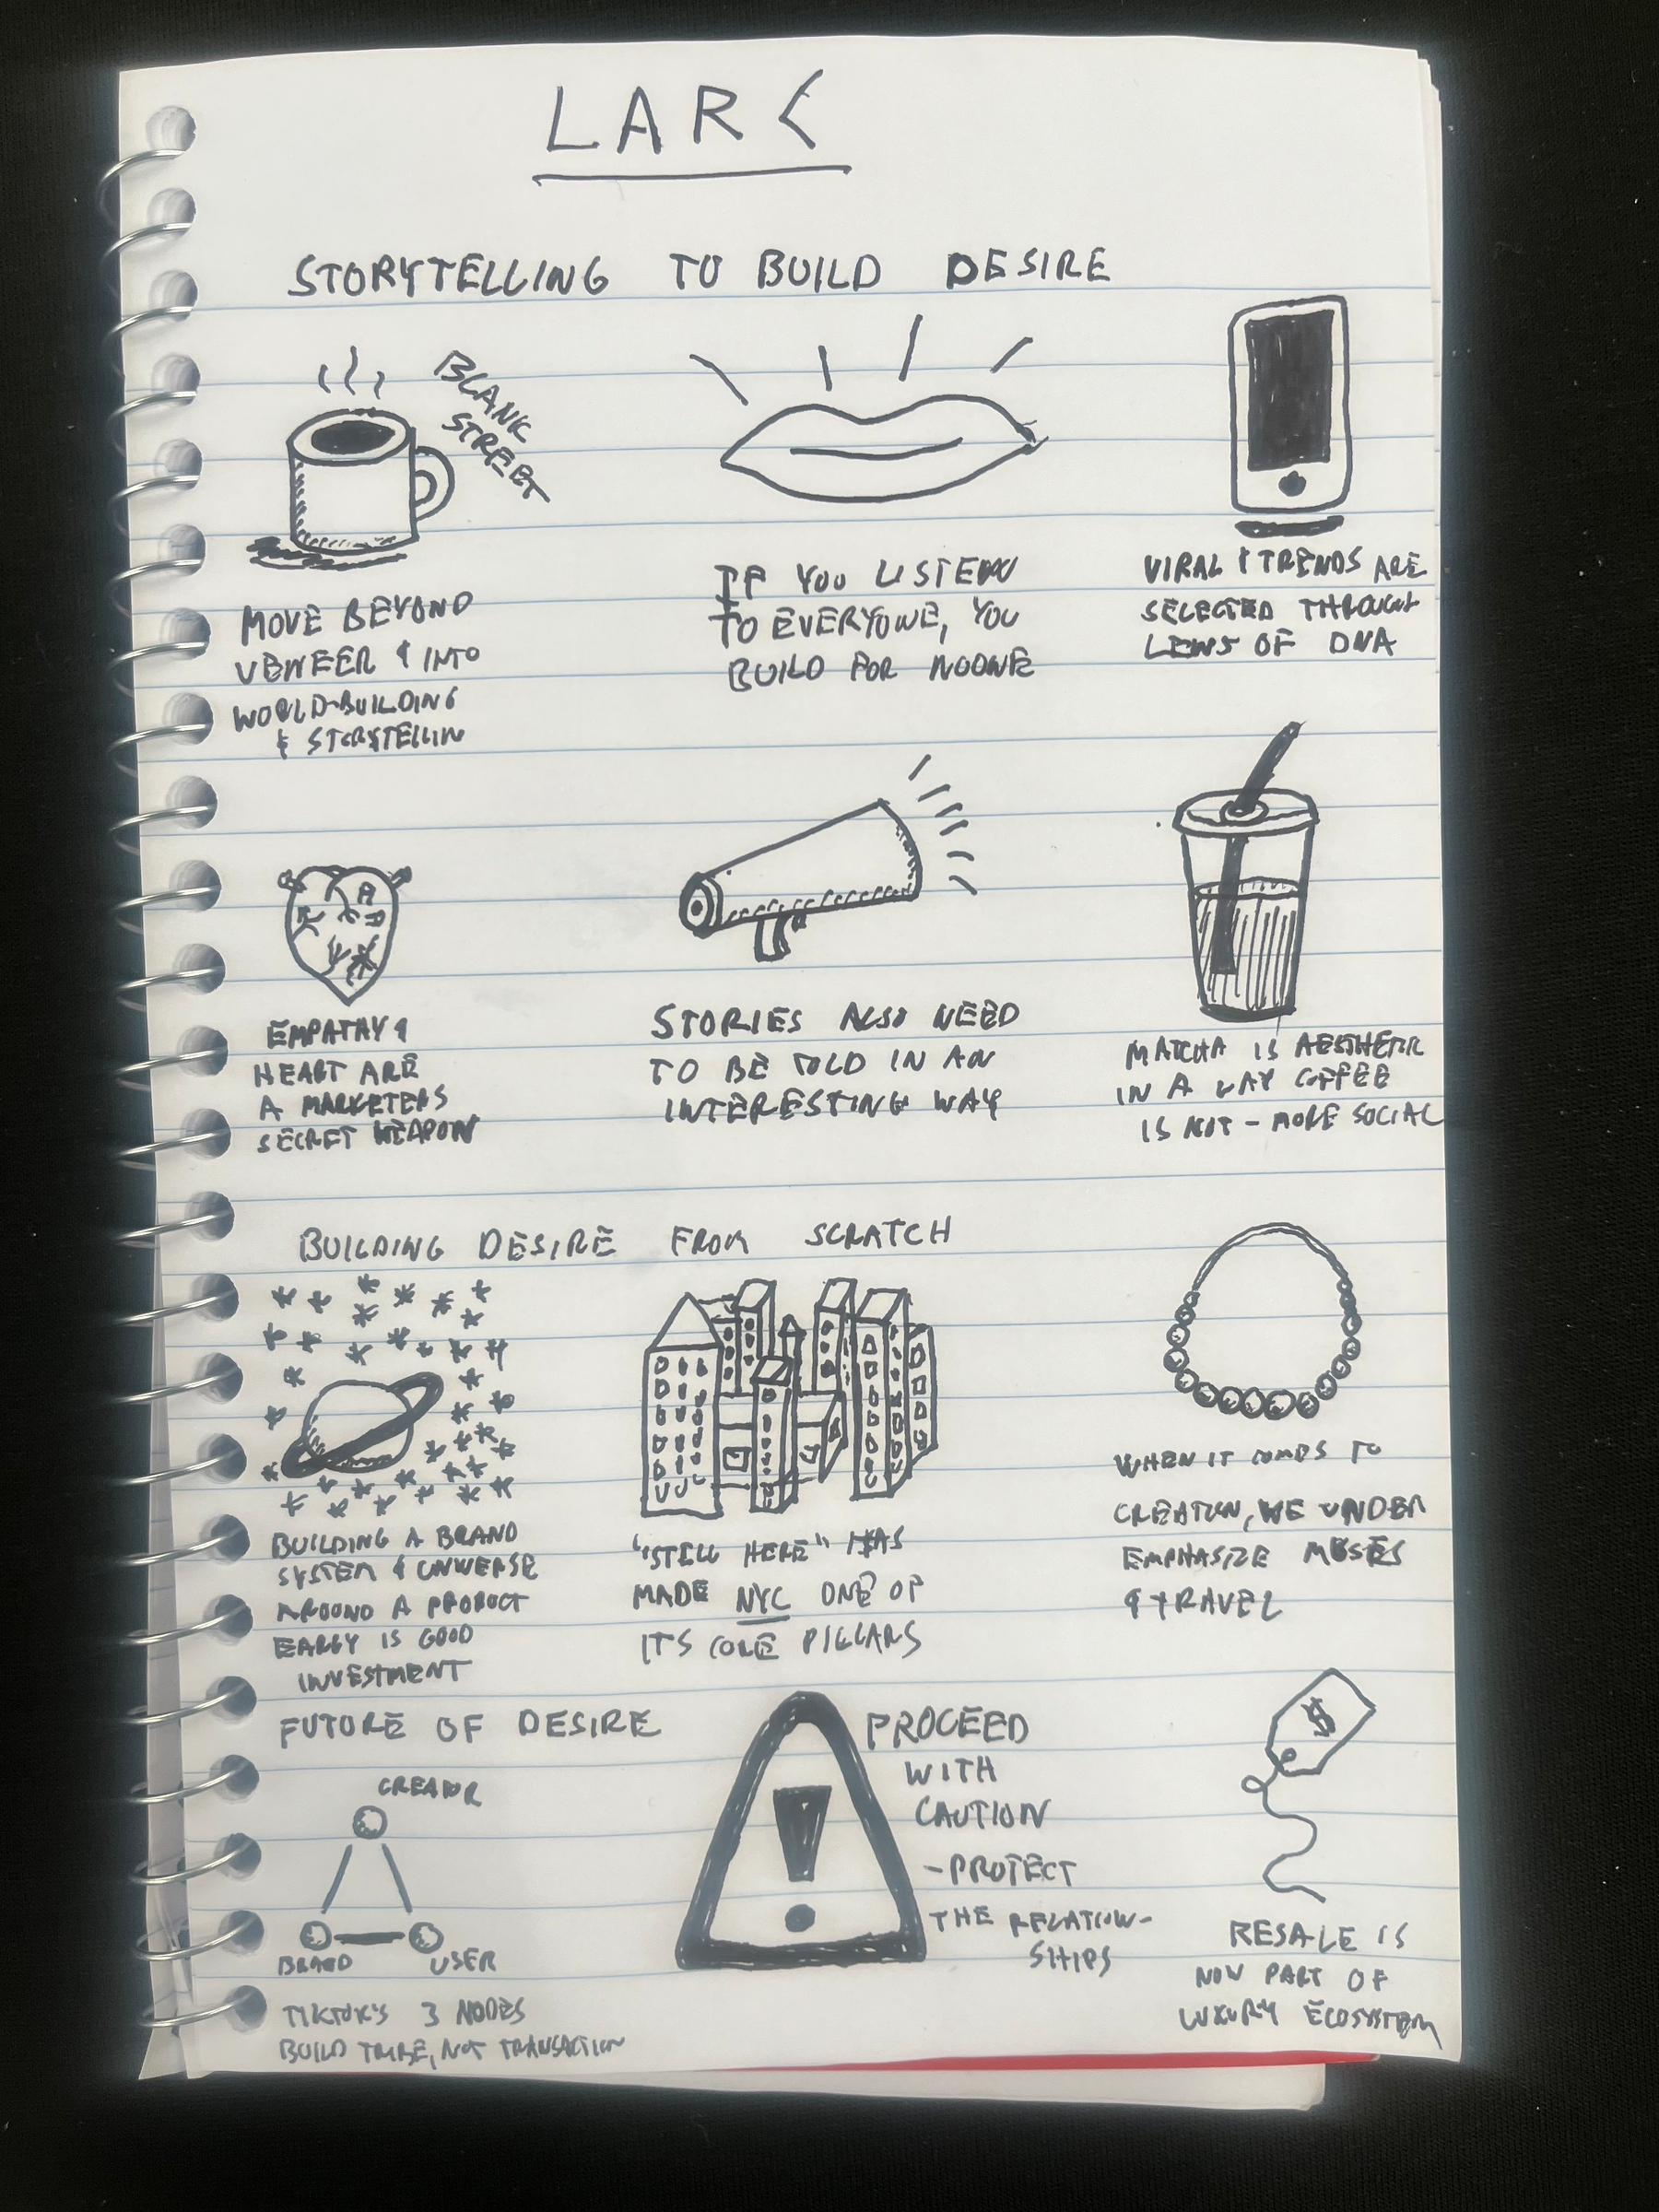 LAR<
STORYTELLING TO BUILD DESIRE
BLANK
STREET
MOVE BEYOND
VENEER & INTO
WORLD-BUILDING
& STORYTELLIN
IF YOU LISTEN
TO EVERYONE, YOU
BUILD FOR NOONE
VIRAL & TRENDS ARE
SELECTED THROUGH
LENS OF DNA
EMPATHY &
HEART ARE
A MARKETERS
SECRET WEAPON
STORIES ALSO NEED
TO BE TOLD IN AN
INTERESTING WAY
MATCHA IS AESTHETIC
IN A WAY COFFEE
IS NOT - MORE SOCIAL
BUILDING DESIRE FROM SCRATCH
BUILDING A BRAND
SYSTEM & UNIVERSE
AROUND A PRODUCT
EARLY IS GOOD
INVESTMENT
"STILL HERE" HAS
MADE NYC ONE OF
IT'S CORE PILLARS
WHEN IT COMES TO
CREATION, WE UNDER
EMPHASIZE MUSES
& TRAVEL
FUTURE OF DESIRE
CREATOR
BRAND USER
TIKTOK'S 3 NODES
BUILD TRIBE, NOT TRANSACTION
PROCEED
WITH
CAUTION
-PROTECT
THE RELATION-
SHIPS
$
RESALE IS
NOW PART OF
LUXURY ECOSYSTEM